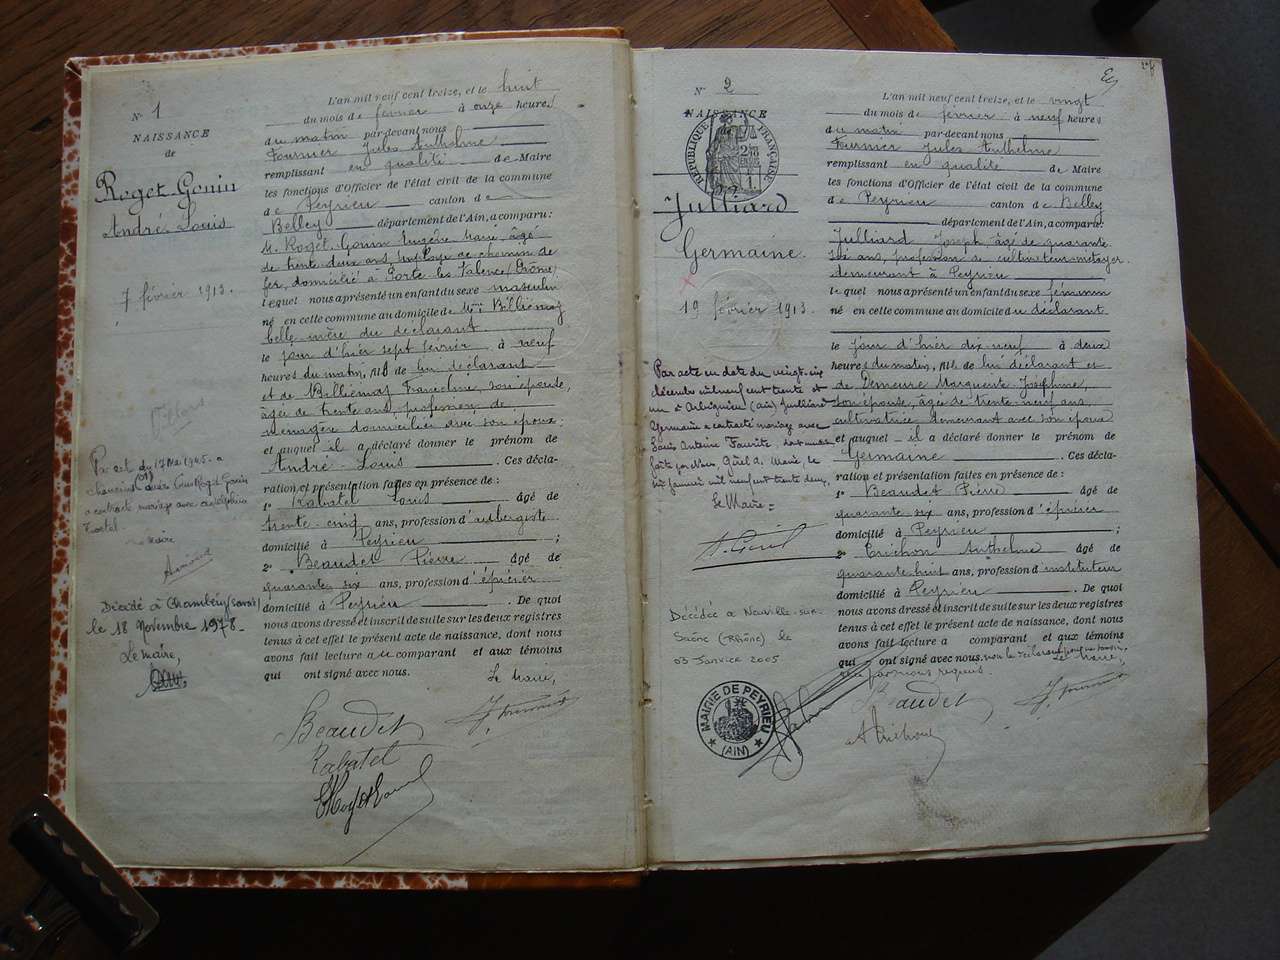 N° 1
NAISSANCE
de
Roget-Gonin
André Louis
7 février 1913.
Villars
Par acte du 17 Mai 1945
a contracté mariage avec
Décédé à Chambéry (Savoie)
le 18 Novembre 1978.
Le maire,
L'an mil neuf cent treize, et le huit
du mois de février à onze heures
du matin par-devant nous
Fournier Jules Anthelme
remplissant en qualité de Maire
les fonctions d'Officier de l'état civil de la commune
de Peyrieu canton de
Belley département de l'Ain, a comparu:
M. Roget-Gonin Eugène Marie, âgé
de trente deux ans, employé de chemin de
fer, domicilié à Porte-les-Valence (Drôme)
lequel nous a présenté un enfant du sexe masculin
né en cette commune au domicile de Mme Billiémaz
belle-mère du déclarant
le jour d'hier sept février à neuf
heures du matin, fils de lui déclarant
et de Billiémaz Francine, son épouse,
âgée de trente ans, profession de
ménagère domiciliée avec son époux;
et auquel il a déclaré donner le prénom de
André-Louis. Ces décla-
ration et présentation faites en présence de :
1° Rabatel Louis âgé de
trente-cinq ans, profession d'aubergiste
domicilié à Peyrieu;
2° Beaudet Pierre âgé de
quarante six ans, profession d'épicier
domicilié à Peyrieu. De quoi
nous avons dressé et inscrit de suite sur les deux registres
tenus à cet effet le présent acte de naissance, dont nous
avons fait lecture au comparant et aux témoins
qui ont signé avec nous. Le maire,
Beaudet J. Fournier
Rabatel
N° 2
NAISSANCE
RÉPUBLIQUE FRANÇAISE
Julliard
Germaine.
19 février 1913.
Par acte en date du vingt-six
décembre mil neuf cent trente et
un à Arbignieu (Ain) Julliard
Germaine a contracté mariage avec
Louis Antoine
janvier mil neuf cent trente deux,
Le Maire =
Décédée à Neuville-sur-
Saône (Rhône) le
03 Janvier 2005
MAIRIE DE PEYRIEU
(AIN)
L'an mil neuf cent treize, et le vingt
du mois de février à neuf heures
du matin par-devant nous
Fournier Jules Anthelme
remplissant en qualité de Maire
les fonctions d'Officier de l'état civil de la commune
de Peyrieu canton de Belley
département de l'Ain, a comparu:
Julliard Joseph âgé de quarante
six ans, profession de cultivateur-métayer
demeurant à Peyrieu
lequel nous a présenté un enfant du sexe féminin
né en cette commune au domicile du déclarant
le jour d'hier dix-neuf à deux
heures du matin, fille de lui déclarant et
de Demeure Marguerite Joséphine,
son épouse, âgée de trente-neuf ans,
cultivatrice demeurant avec son époux
et auquel il a déclaré donner le prénom de
Germaine. Ces décla-
ration et présentation faites en présence de :
1° Beaudet Pierre âgé de
quarante six ans, profession d'épicier
domicilié à Peyrieu;
2° Anthelme âgé de
quarante huit ans, profession d'instituteur
domicilié à Peyrieu. De quoi
nous avons dressé et inscrit de suite sur les deux registres
tenus à cet effet le présent acte de naissance, dont nous
avons fait lecture a comparant et aux témoins
qui ont signé avec nous, non le déclarant
Le maire,
par nous requis.
Beaudet J. Fournier